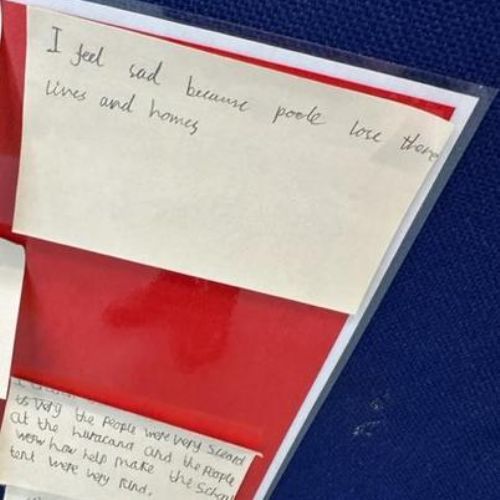 I feel sad because poole lose there
lives and homes
to Very the people were very sceard
at the huracand and the people
wow how help make the School
tent were very kind.